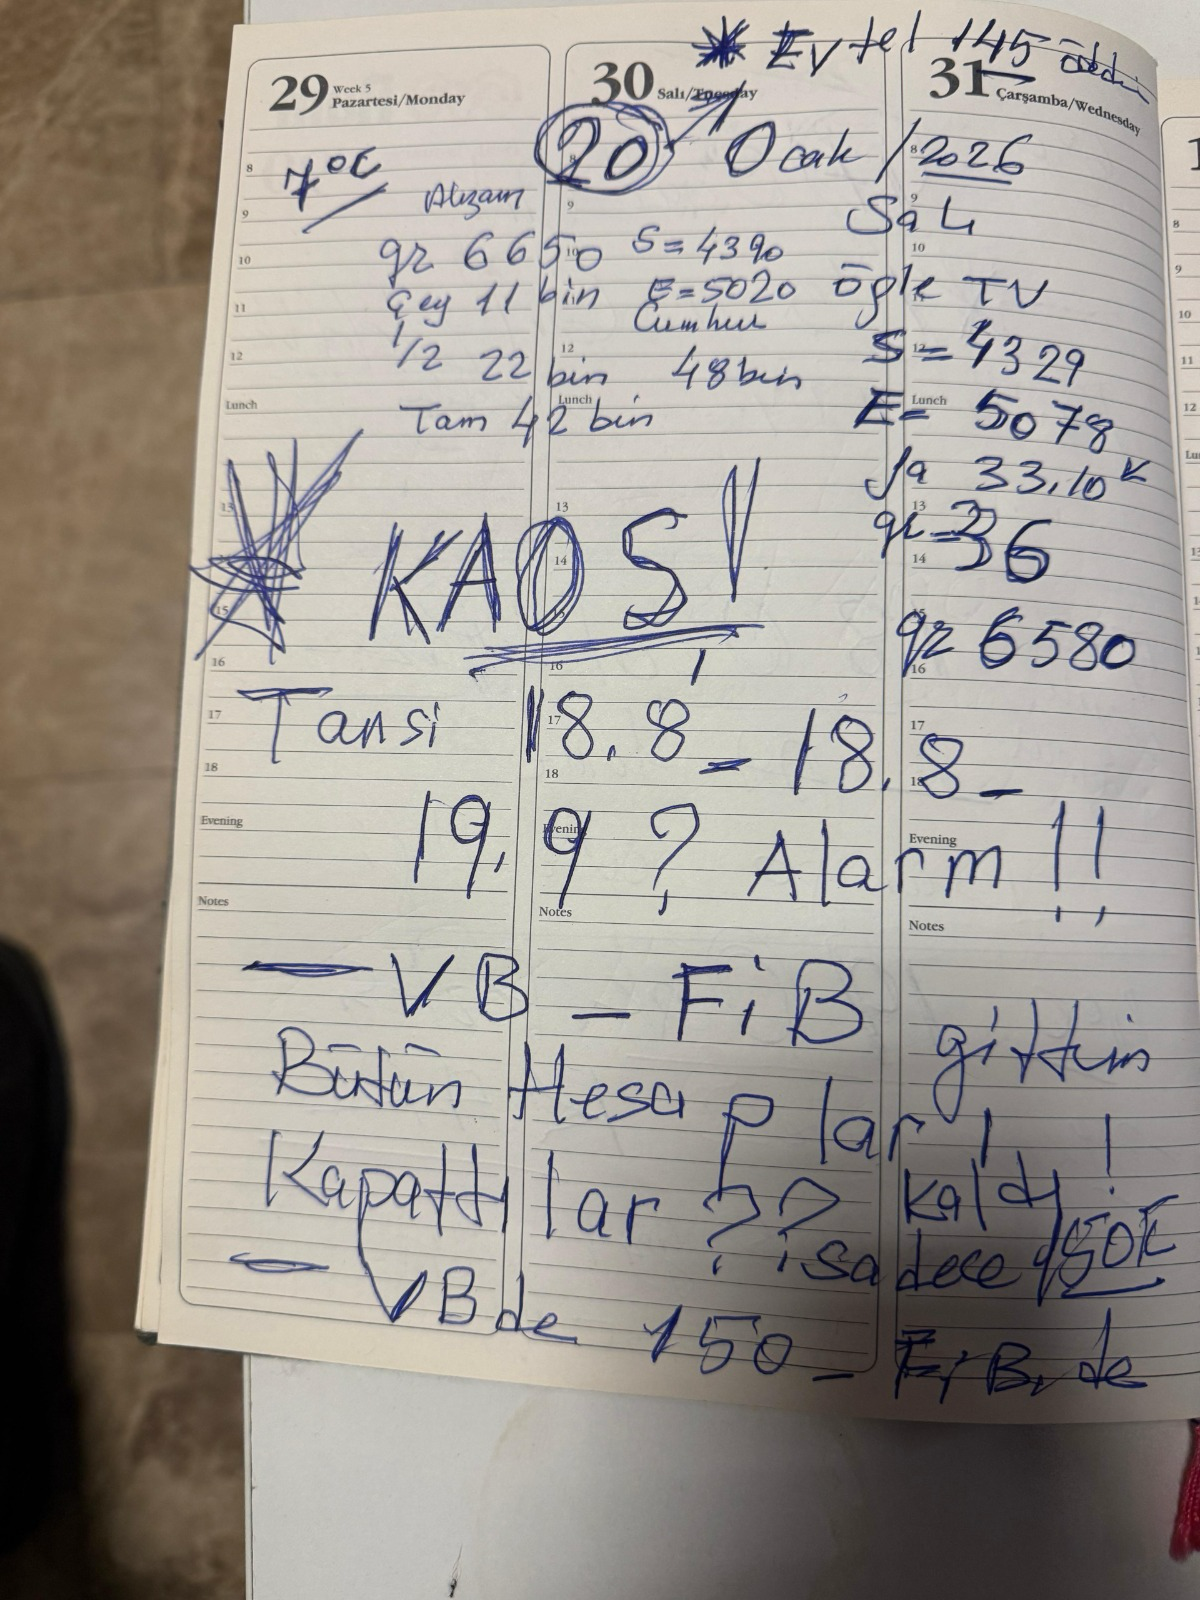 * Ev tel 145 ödedim
29 Week 5 Pazartesi/Monday
30 Salı/Tuesday
31 Çarşamba/Wednesday
7°C
20 Ocak / 2026
Salı
Akşam
gr 6650 S = 4390
Çey 11 bin E = 5020
Cumhur
1/2 22 bin 48 bin
Tam 42 bin
öğle TV
S = 4329
E = 5078
33.10
36
gr 6580
* KAOS!
Tansi 18.8 - 18.8 -
19.9 ? Alarm !!
— VB - FiB
gittim
Bütün Hesapları !
Kapattılar ?? kaldı !
sadece 150
— VB de 150 - FiB. de
8
9
10
11
12
Lunch
13
14
15
16
17
18
Evening
Notes
8
9
10
11
12
Lunch
13
14
15
16
17
18
Evening
Notes
8
9
10
12
Lunch
13
14
15
16
17
18
Evening
Notes
8
9
10
11
12